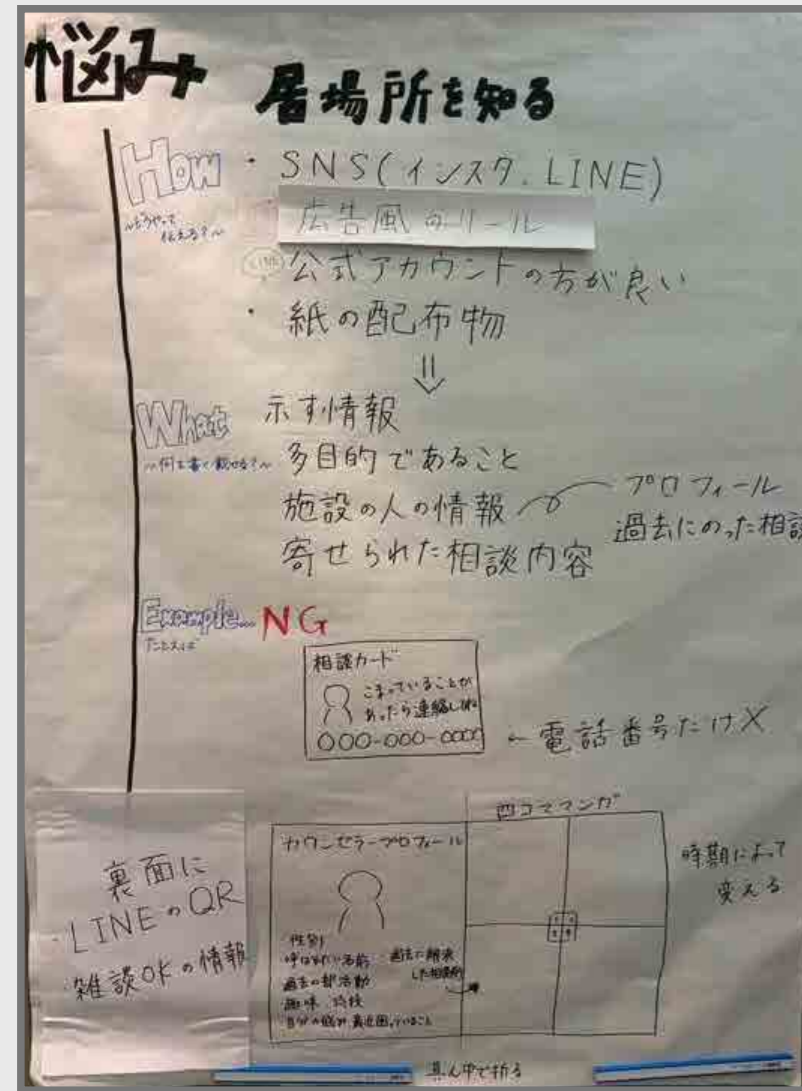 悩み
居場所を知る
How
〜どうやって
伝える?〜
・SNS(インスタ.LINE)
広告風のリール
LINE 公式アカウントの方が良い
・紙の配布物
⇓
What
〜何を書く・載せる?〜
示す情報
多目的であること
施設の人の情報
プロフィール
過去にのった相談
寄せられた相談内容
Example...
たとえば
NG
相談カード
こまっていることが
あったら連絡してね
〇〇〇-〇〇〇-〇〇〇〇
←電話番号だけX
裏面に
LINEのQR
雑談OKの情報
カウンセラープロフィール
・性別
・呼ばれたい名前
・過去の部活動
・趣味、特技
・自分の悩み 最近困っていること
・過去に解決
した相談例
四コママンガ
時期によって
変える
真ん中で折る